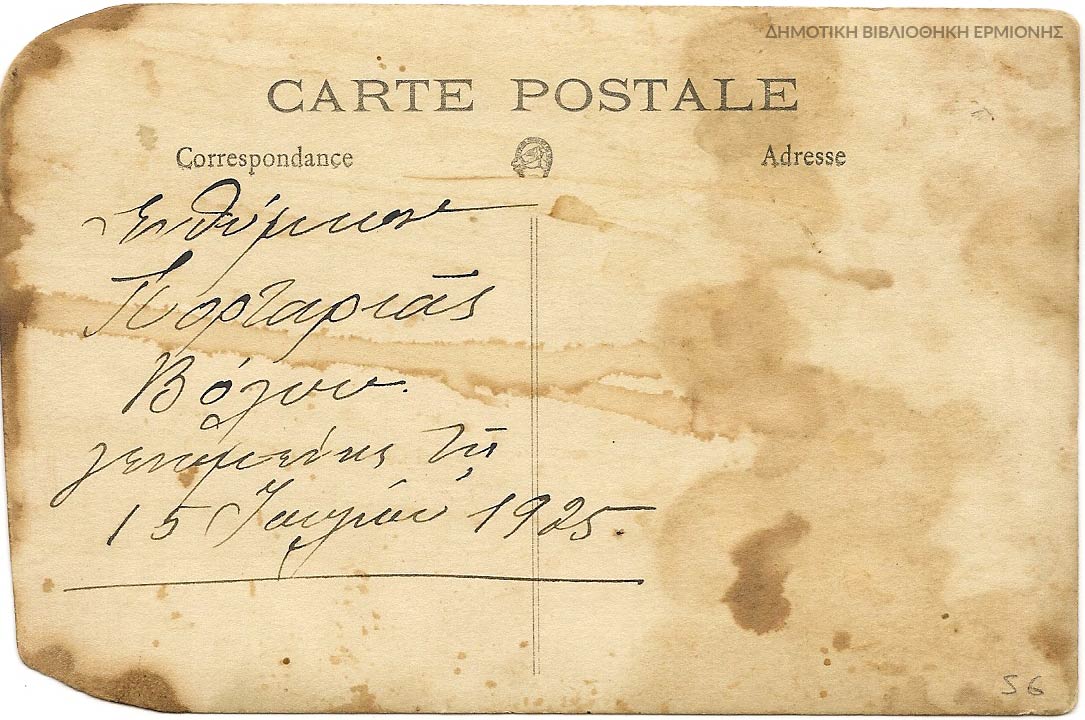 ΔΗΜΟΤΙΚΗ ΒΙΒΛΙΟΘΗΚΗ ΕΡΜΙΟΝΗΣ
CARTE POSTALE
Correspondance
Adresse
Ενθύμιον
Πορταριᾶς
Βόλου.
γενομένης τῇ
15 1925.
56